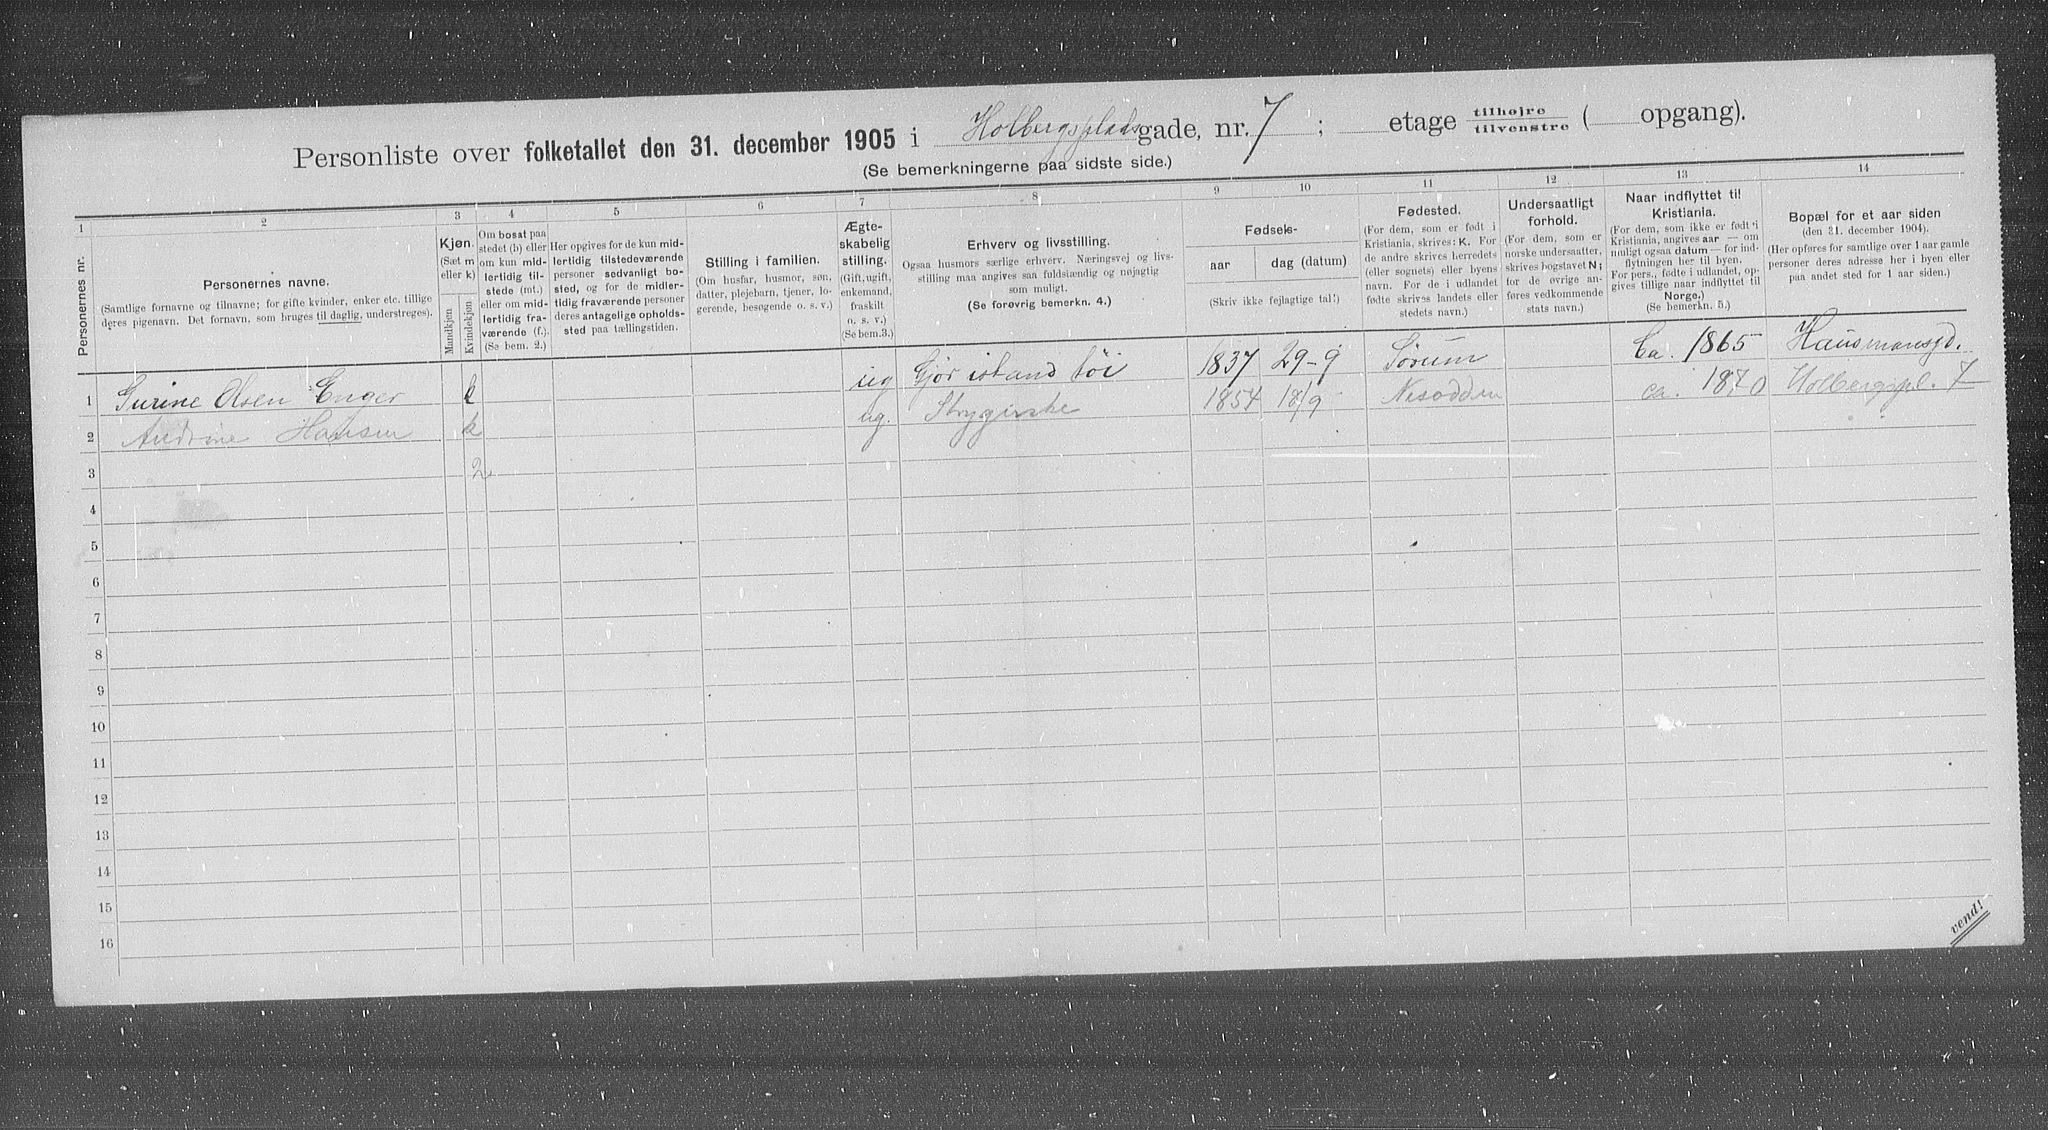 Personliste over folketallet den 31. december 1905 i Holbergsplads gade, nr. 7 ; etage tilhøjre / tilvenstre ( opgang).
(Se bemerkningerne paa sidste side.)
1 2 3 4 5 6 7 8 9 10 11 12 13 14
Personernes nr.
Personernes navne.
(Samtlige fornavne og tilnavne; for gifte kvinder, enker etc. tillige
deres pigenavn. Det fornavn, som bruges til daglig, understreges).
Kjøn.
(Sæt m
eller k)
Mandkjøn
Kvindekjøn
Om bosat paa
stedet (b) eller
om kun mid-
lertidig til-
stede (mt.)
eller om mid-
lertidig fra-
værende (f.)
(Se bem. 2.)
Her opgives for de kun mid-
lertidig tilstedeværende
personer sedvanligt bo-
sted, og for de midler-
tidig fraværende personer
deres antagelige opholds-
sted paa tællingstiden.
Stilling i familien.
(Om husfar, husmor, søn,
datter, plejebarn, tjener, lo-
gerende, besøgende o. s. v.)
Ægte-
skabelig
stilling.
(Gift, ugift,
enkemand,
fraskilt
o. s. v.)
(Se bem.3.)
Erhverv og livsstilling.
Ogsaa husmors særlige erhverv. Næringsvej og livs-
stilling maa angives saa fuldstændig og nøjagtig
som muligt.
(Se forøvrig bemerkn. 4.)
Fødsels-
aar
dag (datum)
(Skriv ikke fejlagtige tal!)
Fødested.
(For dem, som er født i
Kristiania, skrives: K. For
de andre skrives herredets
(eller sognets) eller byens
navn. For de i udlandet
fødte skrives landets eller
stedets navn.)
Undersaatligt
forhold.
(For dem, som er
norske undersaatter,
skrives bogstavet N;
for de øvrige an-
føres vedkommende
stats navn.)
Naar indflyttet til
Kristiania.
(For dem, som ikke er født i
Kristiania, angives aar — om
muligt ogsaa datum — for ind-
flytningen her til byen.
For pers., fødte i udlandet, op-
gives tillige naar indflyttet til
Norge.)
(Se bemerkn. 5.)
Bopæl for et aar siden
(den 31. december 1904).
(Her opføres for samtlige over 1 aar gamle
personer deres adresse her i byen eller
paa andet sted for 1 aar siden.)
1 Gurine Olsen Enger k ug Gjør istand töi 1837 29-9 Sørum Ca. 1865 Hausmansgd.
2 Andrine Hansen k ug. Strygerske 1854 18/9 Nesodden ca. 1870 Holbergspl. 7
3 2
4
5
6
7
8
9
10
11
12
13
14
15
16
vend!